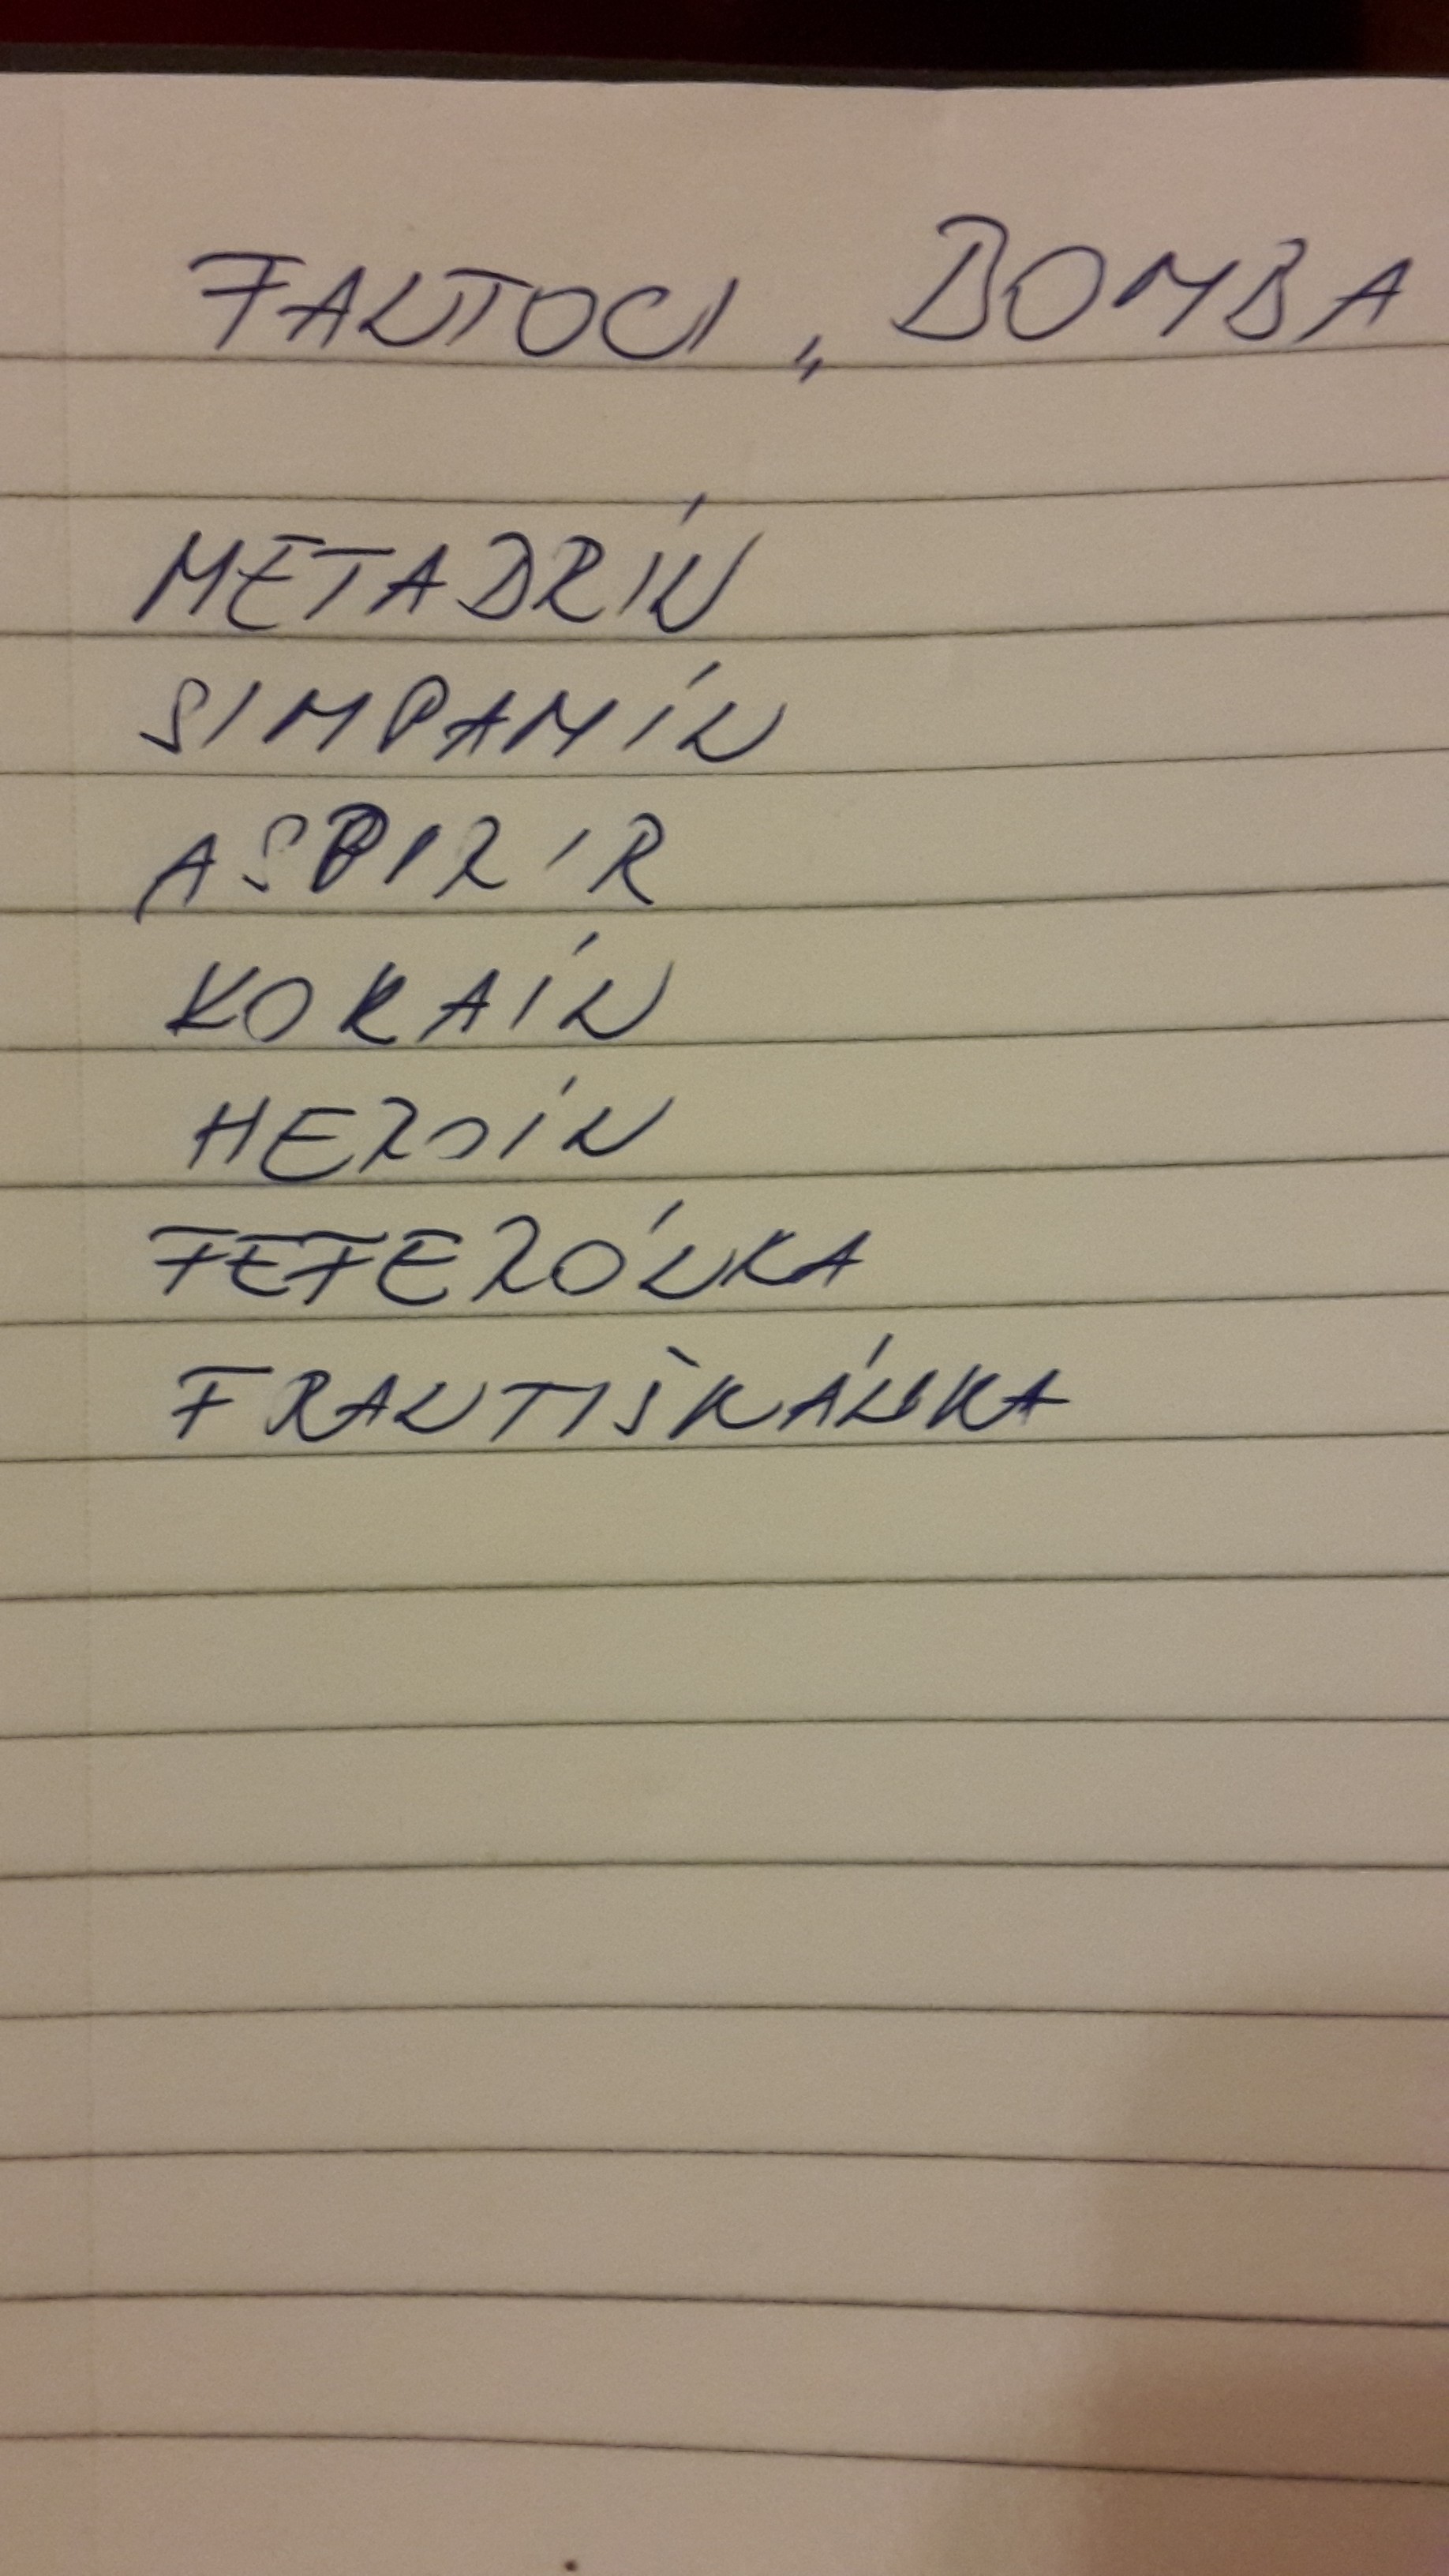 FANTOCI „ BOMBA
METADRÍN
SIMPAMÍN
ASPIRIR
KOKAÍN
HEROÍN
FEFERÓNKA
FRANTIŠKÁNKA